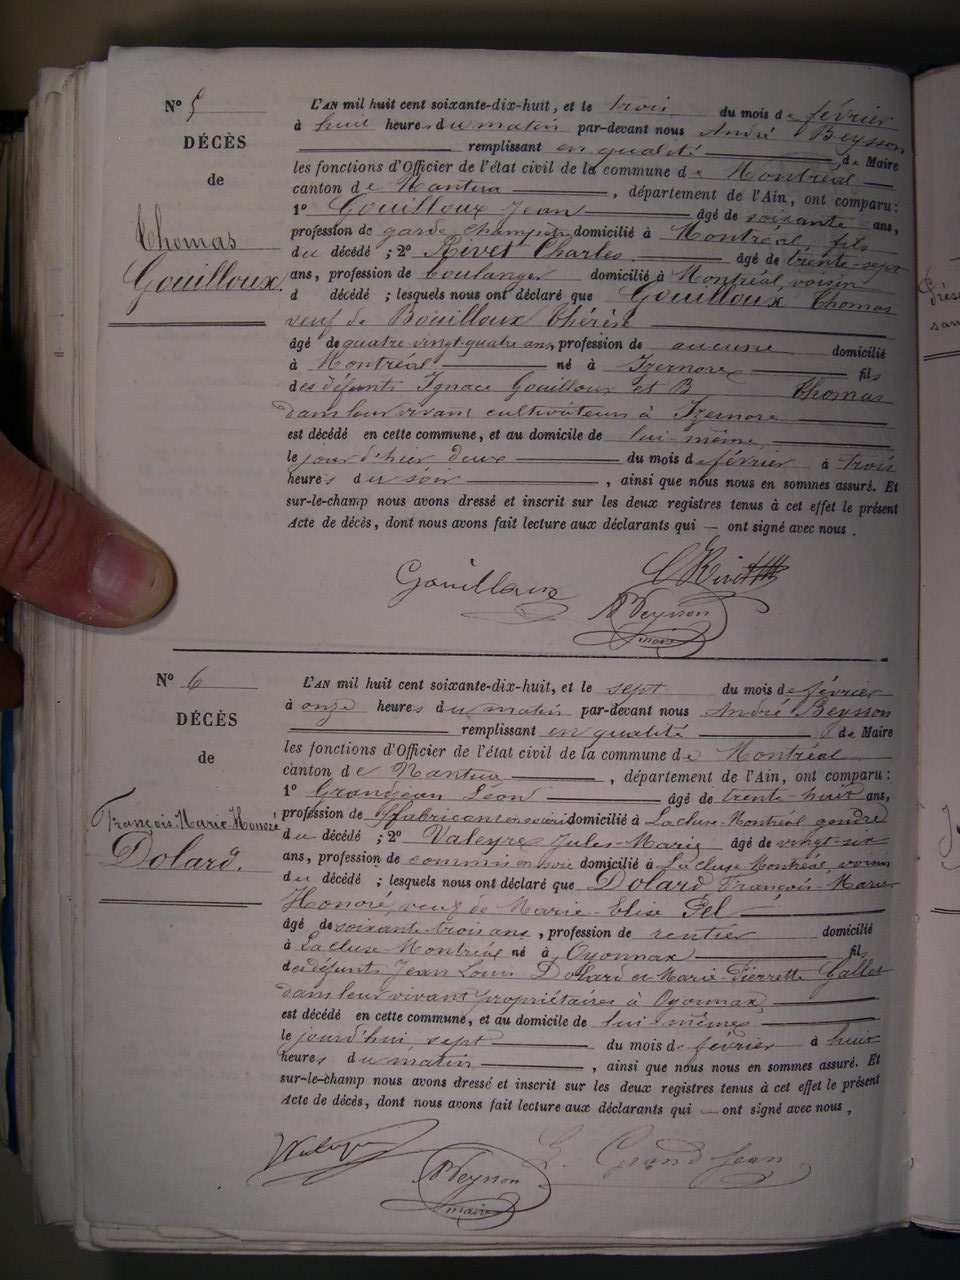 N° 5
DÉCÈS
de
Thomas
Gouilloux.
L'AN mil huit cent soixante-dix-huit, et le trois du mois de février
à huit heures du matin par-devant nous André Beysson
remplissant en qualité de Maire
les fonctions d'Officier de l'état civil de la commune de Montréal
canton de Nantua, département de l'Ain, ont comparu:
1° Gouilloux Jean âgé de soixante ans,
profession de garde champêtre domicilié à Montréal, fils
du décédé; 2° Rivet Charles âgé de trente-sept
ans, profession de boulanger domicilié à Montréal, voisin
d décédé; lesquels nous ont déclaré que Gouilloux Thomas
veuf de Bouilloux Thérèse
âgé de quatre-vingt-quatre ans, profession de aucune domicilié
à Montréal né à Izernore fils
des défunts Ignace Gouilloux et B Thomas
dans leur vivant cultivateurs à Izernore
est décédé en cette commune, et au domicile de lui-même,
le jour d'hier deux du mois de février à trois
heures du soir, ainsi que nous nous en sommes assuré. Et
sur-le-champ nous avons dressé et inscrit sur les deux registres tenus à cet effet le présent
Acte de décès, dont nous avons fait lecture aux déclarants qui — ont signé avec nous.
Gouilloux
C Rivet
A Beysson
maire
N° 6
DÉCÈS
de
François-Marie-Honoré
Dolard.
L'AN mil huit cent soixante-dix-huit, et le sept du mois de février
à onze heures du matin par-devant nous André Beysson
remplissant en qualité de Maire
les fonctions d'Officier de l'état civil de la commune de Montréal
canton de Nantua, département de l'Ain, ont comparu:
1° Grandjean Léon âgé de trente-huit ans,
profession de fabricant en soierie domicilié à Lacluse-Montréal gendre
du décédé; 2° Valeyre Jules-Marie âgé de vingt-six
ans, profession de domicilié à Lacluse-Montréal, voisin
du décédé; lesquels nous ont déclaré que Dolard François-Marie
Honoré, veuf de Marie-Elise Pel
âgé de soixante-trois ans, profession de rentier domicilié
à Lacluse-Montréal né à Oyonnax fils
des défunts Jean Louis Dolard et Marie-Pierrette Gallet
dans leur vivant propriétaires à Oyonnax,
est décédé en cette commune, et au domicile de lui-même,
le jourd'hui, sept du mois de février à huit
heures du matin, ainsi que nous nous en sommes assuré. Et
sur-le-champ nous avons dressé et inscrit sur les deux registres tenus à cet effet le présent
Acte de décès, dont nous avons fait lecture aux déclarants qui — ont signé avec nous,
A Beysson
maire
L. Grandjean